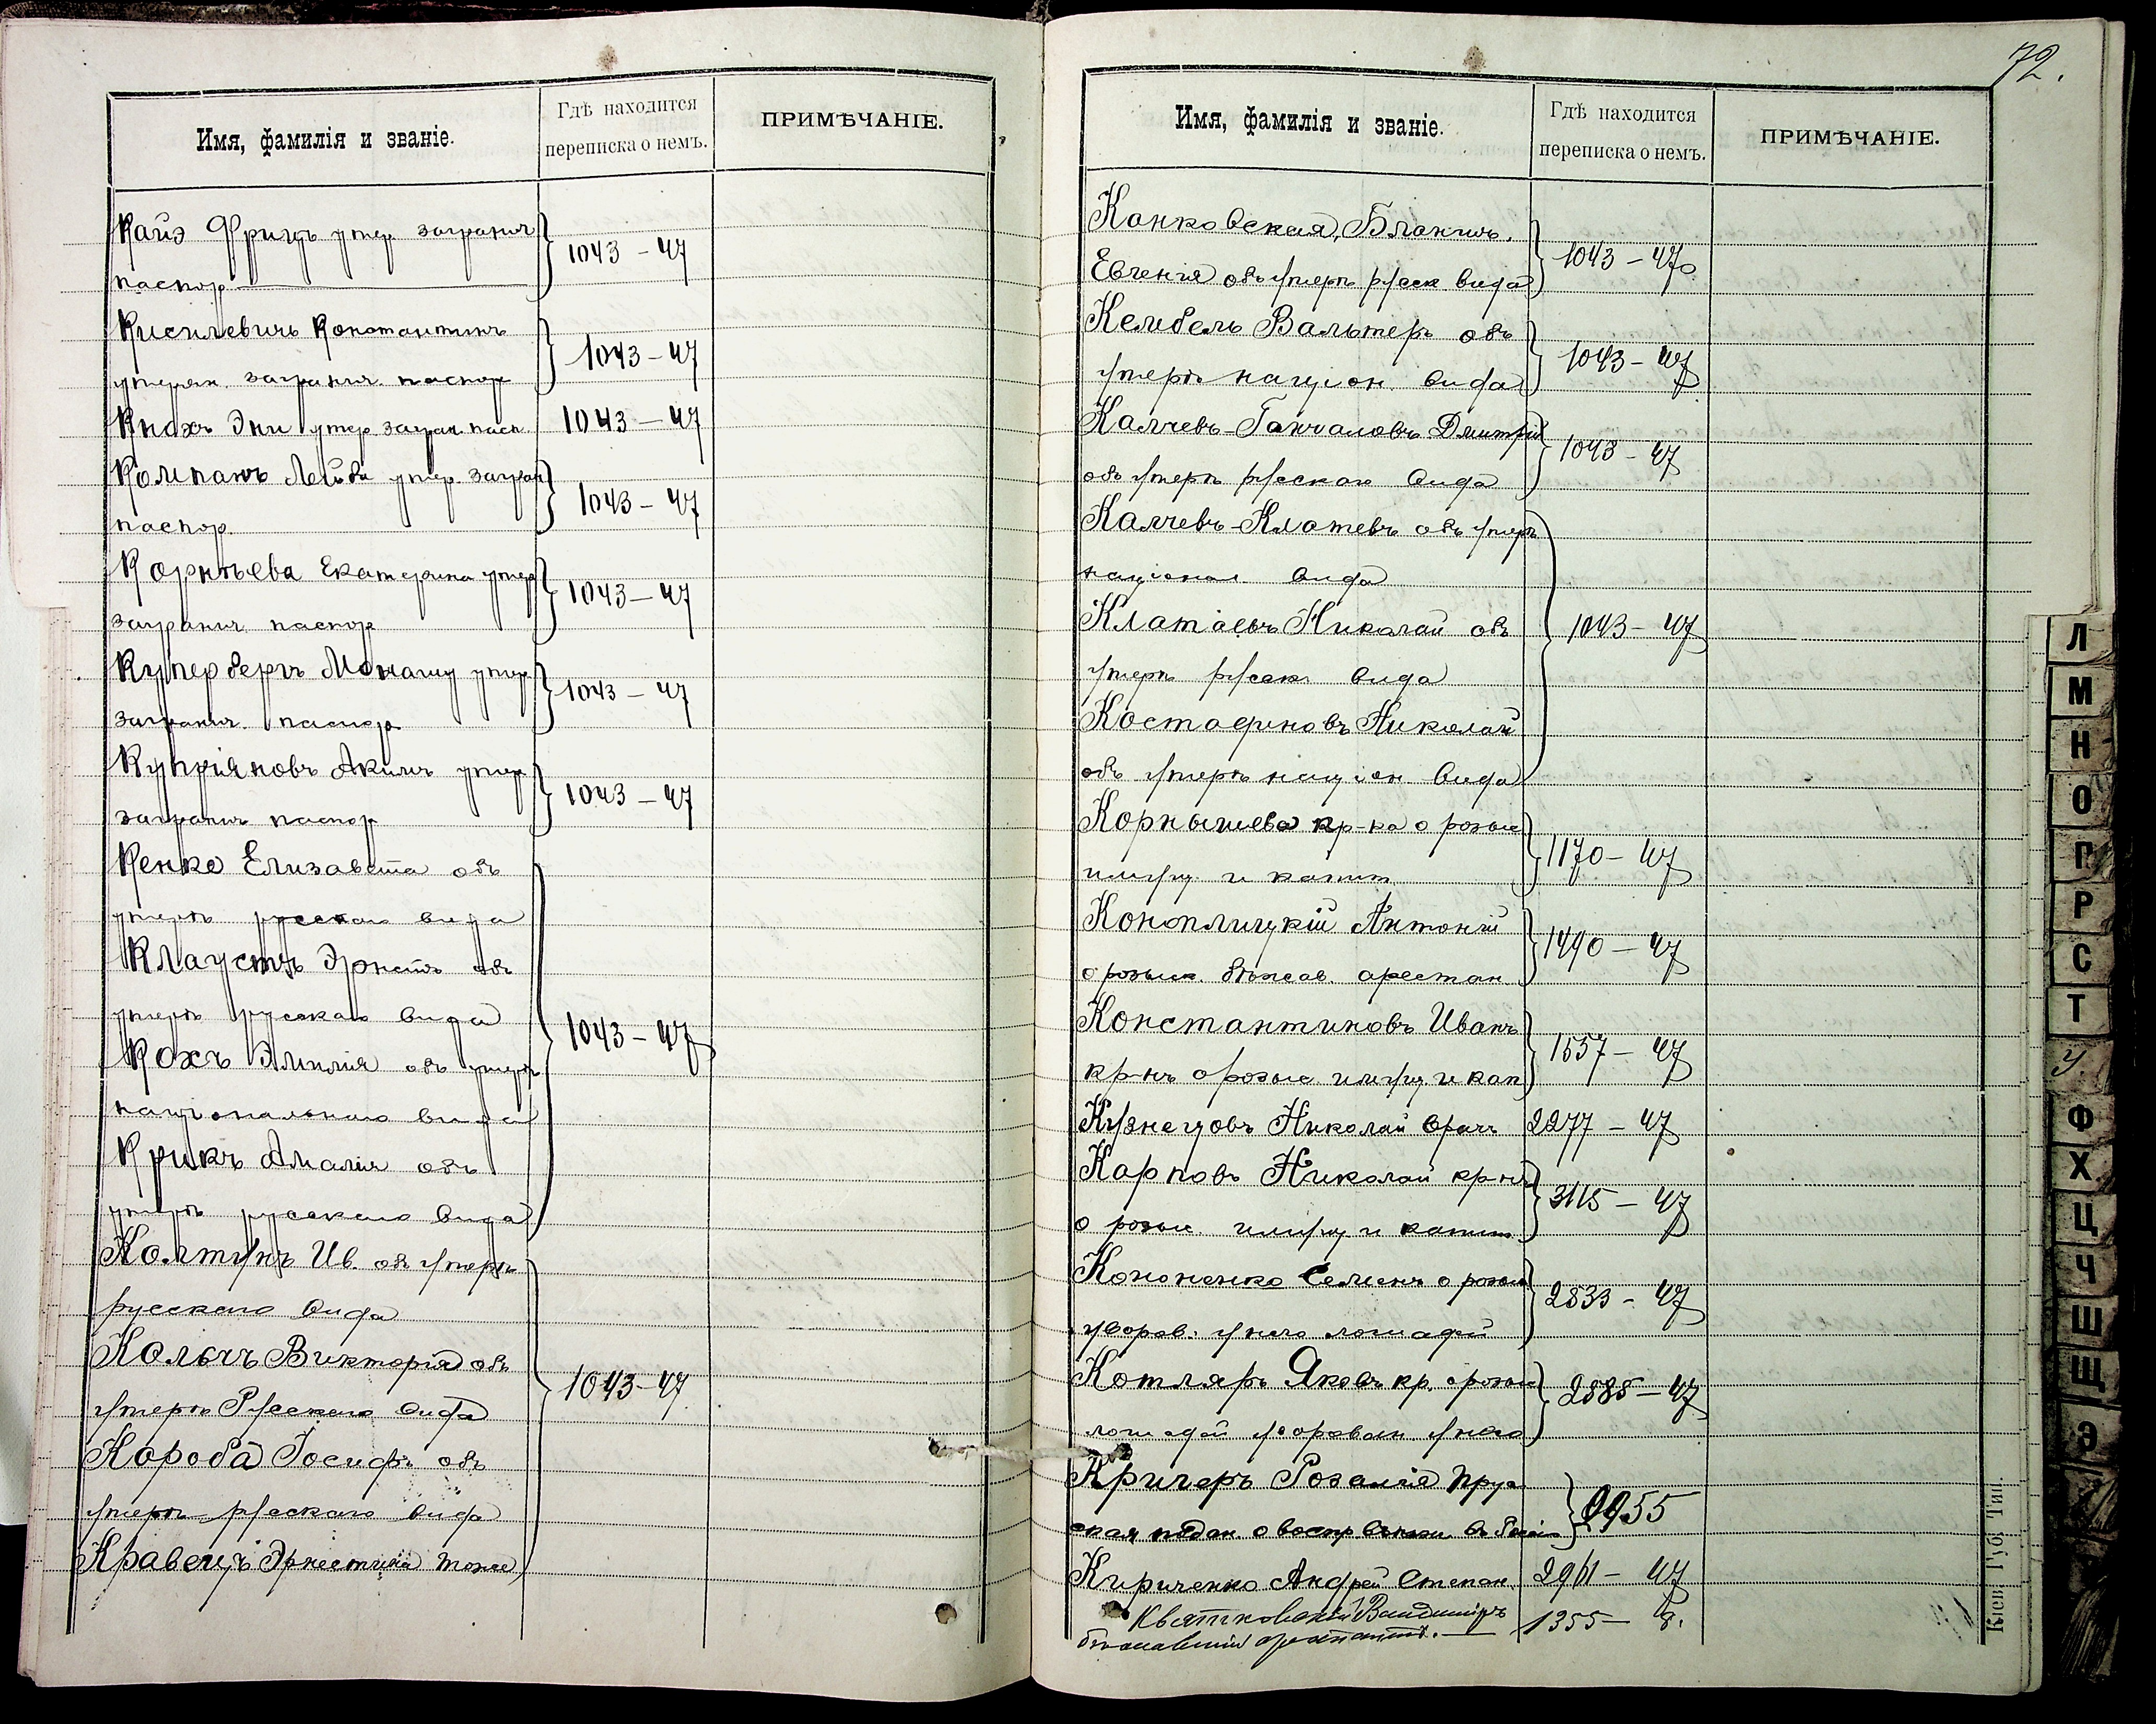 Имя, фамилія и званіе.
Гдѣ находится
переписка о немъ.
ПРИМѢЧАНІЕ.
Кайз Фрицъ утер. загранич.
паспор.
1043 – 47
Кисилевичъ Константинъ
утерян. загранич. паспор
1043 – 47
Кнохъ Эни утер. загран. пасп.
1043 – 47
Компанъ Лейба утер. загран
паспор.
1043 – 47
Корнѣева Екатерина утер
загранич. паспор
1043 – 47
Купербергъ Монашу утер
загранич. паспор
1043 – 47
Купріяновъ Акимъ утер
загранич паспор
1043 – 47
Кенке Елизавета объ
утерѣ русскаго вида
Клаустъ Эрнстъ объ
утерѣ русскаго вида
Кохъ Эмилія объ утерѣ
національнаго вида
1043 – 47
Крикъ Амалія объ
утерѣ русскаго вида
Колтунъ Ив. объ утерѣ
русскаго вида
Кольчъ Викторія объ
утерѣ Русскаго вида
1043–47
Короба Іосифъ объ
утерѣ русскаго вида
Кравецъ Эрнестина тоже
72.
Имя, фамилія и званіе.
Гдѣ находится
переписка о немъ.
ПРИМѢЧАНІЕ.
Конковская, Бланшъ.
Евгенія объ утерѣ русск вида
1043 – 47
Кембель Вальтеръ объ
утерѣ націон. вида
1043 – 47
Калчевъ-Ганчаловъ Дмитрій
объ утерѣ русскаго вида
1043 – 47
Калчевъ-Клатевъ объ утерѣ
національ вида
Клатаевъ Николай объ
утерѣ русск вида
1043 – 47
Костадиновъ Николай
объ утерѣ націон. вида
Корнышева кр-ка о розыс
имущ. и капит
1170 – 47
Коноплицкій Антоній
о розыск. бѣжав. арестан.
1490 – 47
Константиновъ Иванъ
кр-нъ о розыс. имущ. и кап
1557 – 47
Кузнецовъ Николай врачъ
2277 – 47
Карповъ Николай кр-нъ
о розыс. имущ и капит.
3115 – 47
Кононенко Семенъ о розыс
уворов. у него лошадей
2833 – 47
Котляръ Яковъ кр. о розыс
лошадей уворован у него
2885 – 47
Кричеръ Розалія Прус
ская подан. о воспр
2955
Кириченко Андрей Степан.
2961 – 47
Квятковскій Владиміръ
бѣжавшій арестантъ.
1355 – 8.
Кіев. Губ. Тип.
Л
М
Н
О
П
Р
С
Т
У.
Ф
Х
Ц
Ч
Ш
Щ
Э